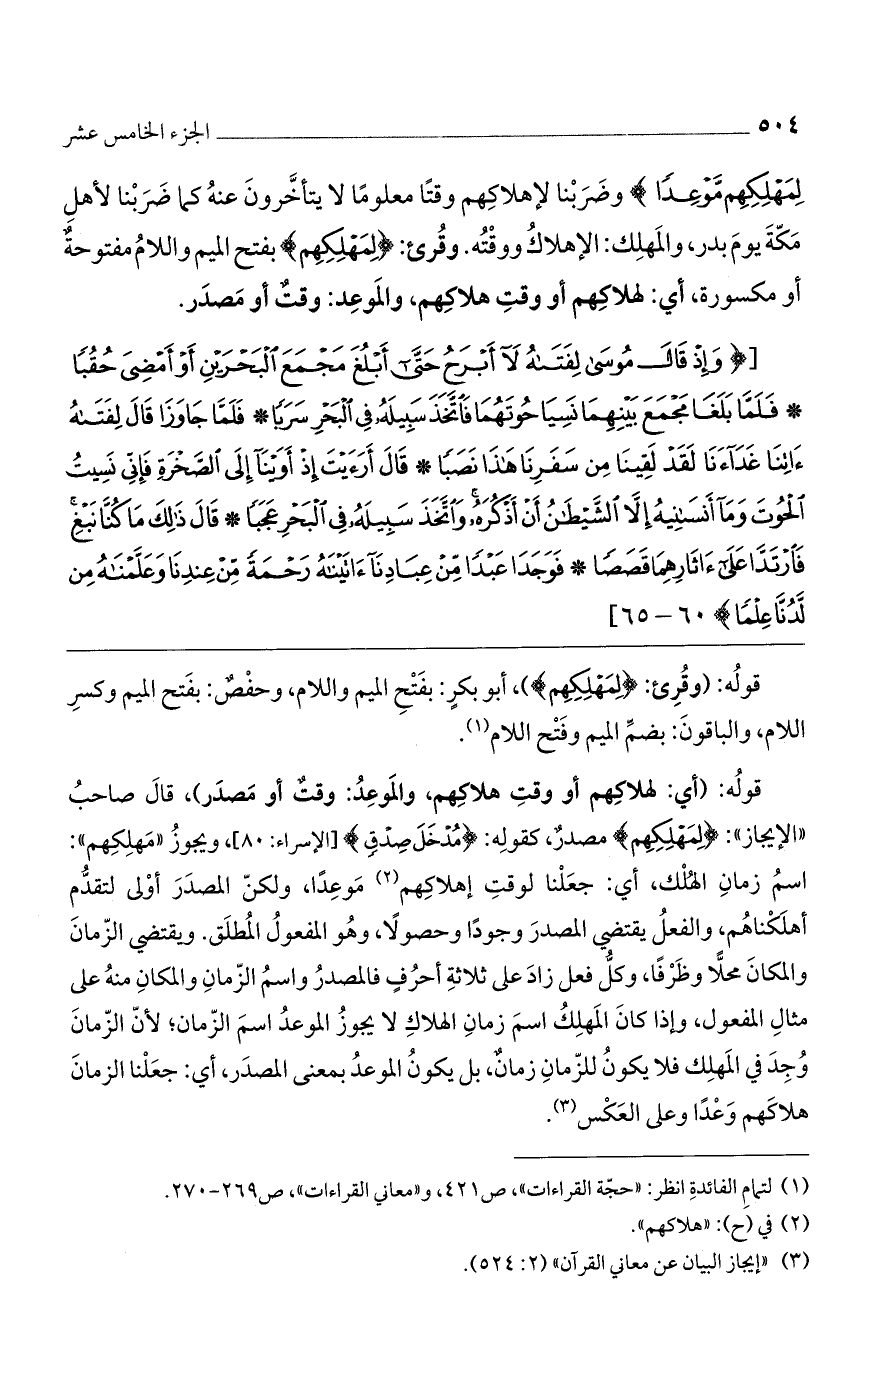 ٥٠٤ ــــــــــــــــــــــــــــــــ الجزء الخامس عشر
لِمَهْلِكِهِم مَّوْعِدًا ﴾ وضَرَبْنا لإهلاكِهم وقتًا معلومًا لا يتأخَّرونَ عنهُ كما ضَرَبْنا لأهلِ
مَكّةَ يومَ بدر، والمَهلِك: الإهلاكُ ووقْتُه. وقُرئ: ﴿لِمَهْلِكِهِم﴾ بفتح الميم واللامُ مفتوحةٌ
أو مكسورة، أي: لهلاكِهم أو وقتِ هلاكِهم، والمَوعِد: وقتٌ أو مَصدَر.
[﴿ وَإِذْ قَالَ مُوسَىٰ لِفَتَىٰهُ لَآ أَبْرَحُ حَتَّىٰٓ أَبْلُغَ مَجْمَعَ ٱلْبَحْرَيْنِ أَوْ أَمْضِىَ حُقُبًا
* فَلَمَّا بَلَغَا مَجْمَعَ بَيْنِهِمَا نَسِيَا حُوتَهُمَا فَٱتَّخَذَ سَبِيلَهُۥ فِى ٱلْبَحْرِ سَرَبًا * فَلَمَّا جَاوَزَا قَالَ لِفَتَىٰهُ
ءَاتِنَا غَدَآءَنَا لَقَدْ لَقِينَا مِن سَفَرِنَا هَٰذَا نَصَبًا * قَالَ أَرَءَيْتَ إِذْ أَوَيْنَآ إِلَى ٱلصَّخْرَةِ فَإِنِّى نَسِيتُ
ٱلْحُوتَ وَمَآ أَنسَىٰنِيهُ إِلَّا ٱلشَّيْطَٰنُ أَنْ أَذْكُرَهُۥ وَٱتَّخَذَ سَبِيلَهُۥ فِى ٱلْبَحْرِ عَجَبًا * قَالَ ذَٰلِكَ مَا كُنَّا نَبْغِ
فَٱرْتَدَّا عَلَىٰٓ ءَاثَارِهِمَا قَصَصًا * فَوَجَدَا عَبْدًا مِّنْ عِبَادِنَآ ءَاتَيْنَٰهُ رَحْمَةً مِّنْ عِندِنَا وَعَلَّمْنَٰهُ مِن
لَّدُنَّا عِلْمًا ﴾ ٦٠ – ٦٥]
قولُه: (وقُرِئ: ﴿لِمَهْلِكِهِم﴾)، أبو بكرٍ: بفَتْحِ الميم واللام، وحفْصٌ: بفَتح الميم وكسرِ
اللام، والباقونَ: بضمِّ الميم وفَتْح اللام(١).
قولُه: (أي: لهلاكِهم أو وقتِ هلاكِهم، والمَوعِدُ: وقتٌ أو مَصدَر)، قالَ صاحبُ
«الإيجاز»: ﴿لِمَهْلِكِهِم﴾ مصدرٌ، كقولِه: ﴿مُدْخَلَ صِدْقٍ﴾ [الإسراء: ٨٠]، ويجوزُ «مَهلِكِهم»:
اسمُ زمانِ الهُلْك، أي: جعَلْنا لوقتِ إهلاكِهم(٢) مَوعِدًا، ولكنّ المصدَرَ أوْلى لتقدُّم
أهلَكْناهُم، والفعلُ يقتضي المصدرَ وجودًا وحصولًا، وهُو المفعولُ المُطلَق. ويقتضي الزّمانَ
والمكانَ محلًّا وظَرْفًا، وكلُّ فعل زادَ على ثلاثةِ أحرُفٍ فالمصدرُ واسمُ الزّمانِ والمكانِ منهُ على
مثالِ المفعول، وإذا كانَ المَهلِكُ اسمَ زمانِ الهلاكِ لا يجوزُ الموعدُ اسمَ الزّمان؛ لأنّ الزّمانَ
وُجِدَ في المَهلِك فلا يكونُ للزّمانِ زمانٌ، بل يكونُ الموعدُ بمعنى المصدَر، أي: جعَلْنا الزمانَ
هلاكَهم وَعْدًا وعلى العَكْس(٣).
(١) لتمامِ الفائدةِ انظر: «حجّة القراءات»، ص٤٢١، و«معاني القراءات»، ص٢٦٩-٢٧٠.
(٢) في (ح): «هلاكهم».
(٣) «إيجاز البيان عن معاني القرآن» (٢: ٥٢٤).